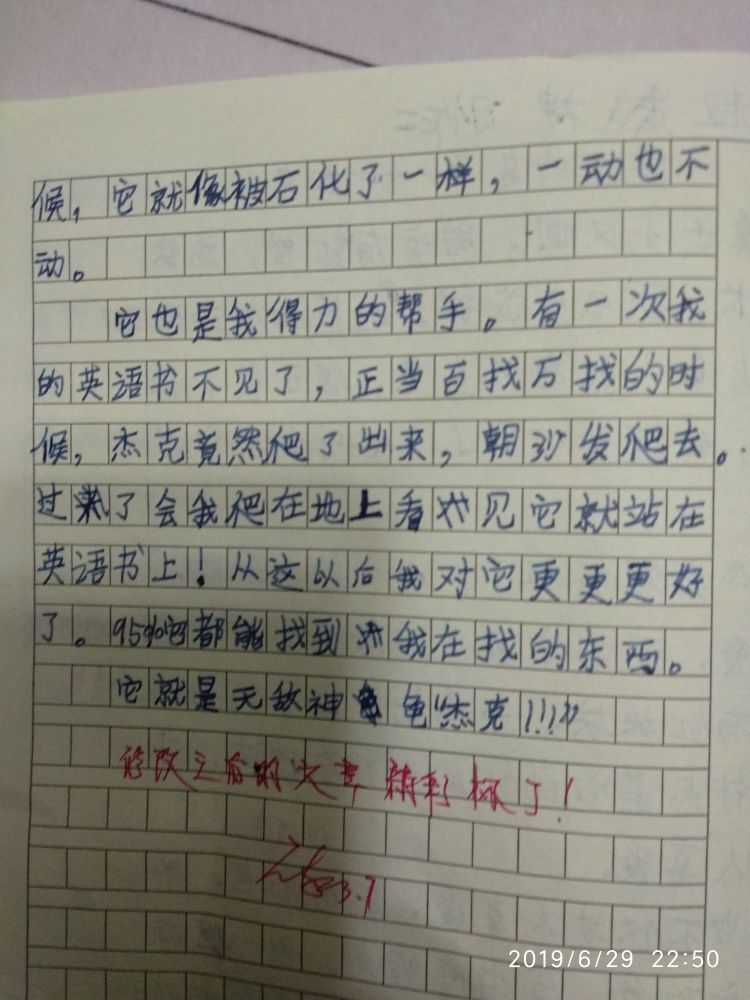 候，它就像被石化了一样，一动也不
动。
它也是我得力的帮手。有一次我
的英语书不见了，正当百找万找的时
候，杰克竟然爬了出来，朝沙发爬去。
过来了会我爬在地上看 见它就站在
英语书上！从这以后我对它更更更好
了。95%它都能找到 我在找的东西。
它就是无敌神龟“杰克！！！”
修改之后的文章精彩极了！
3.7
2019/6/29 22:50